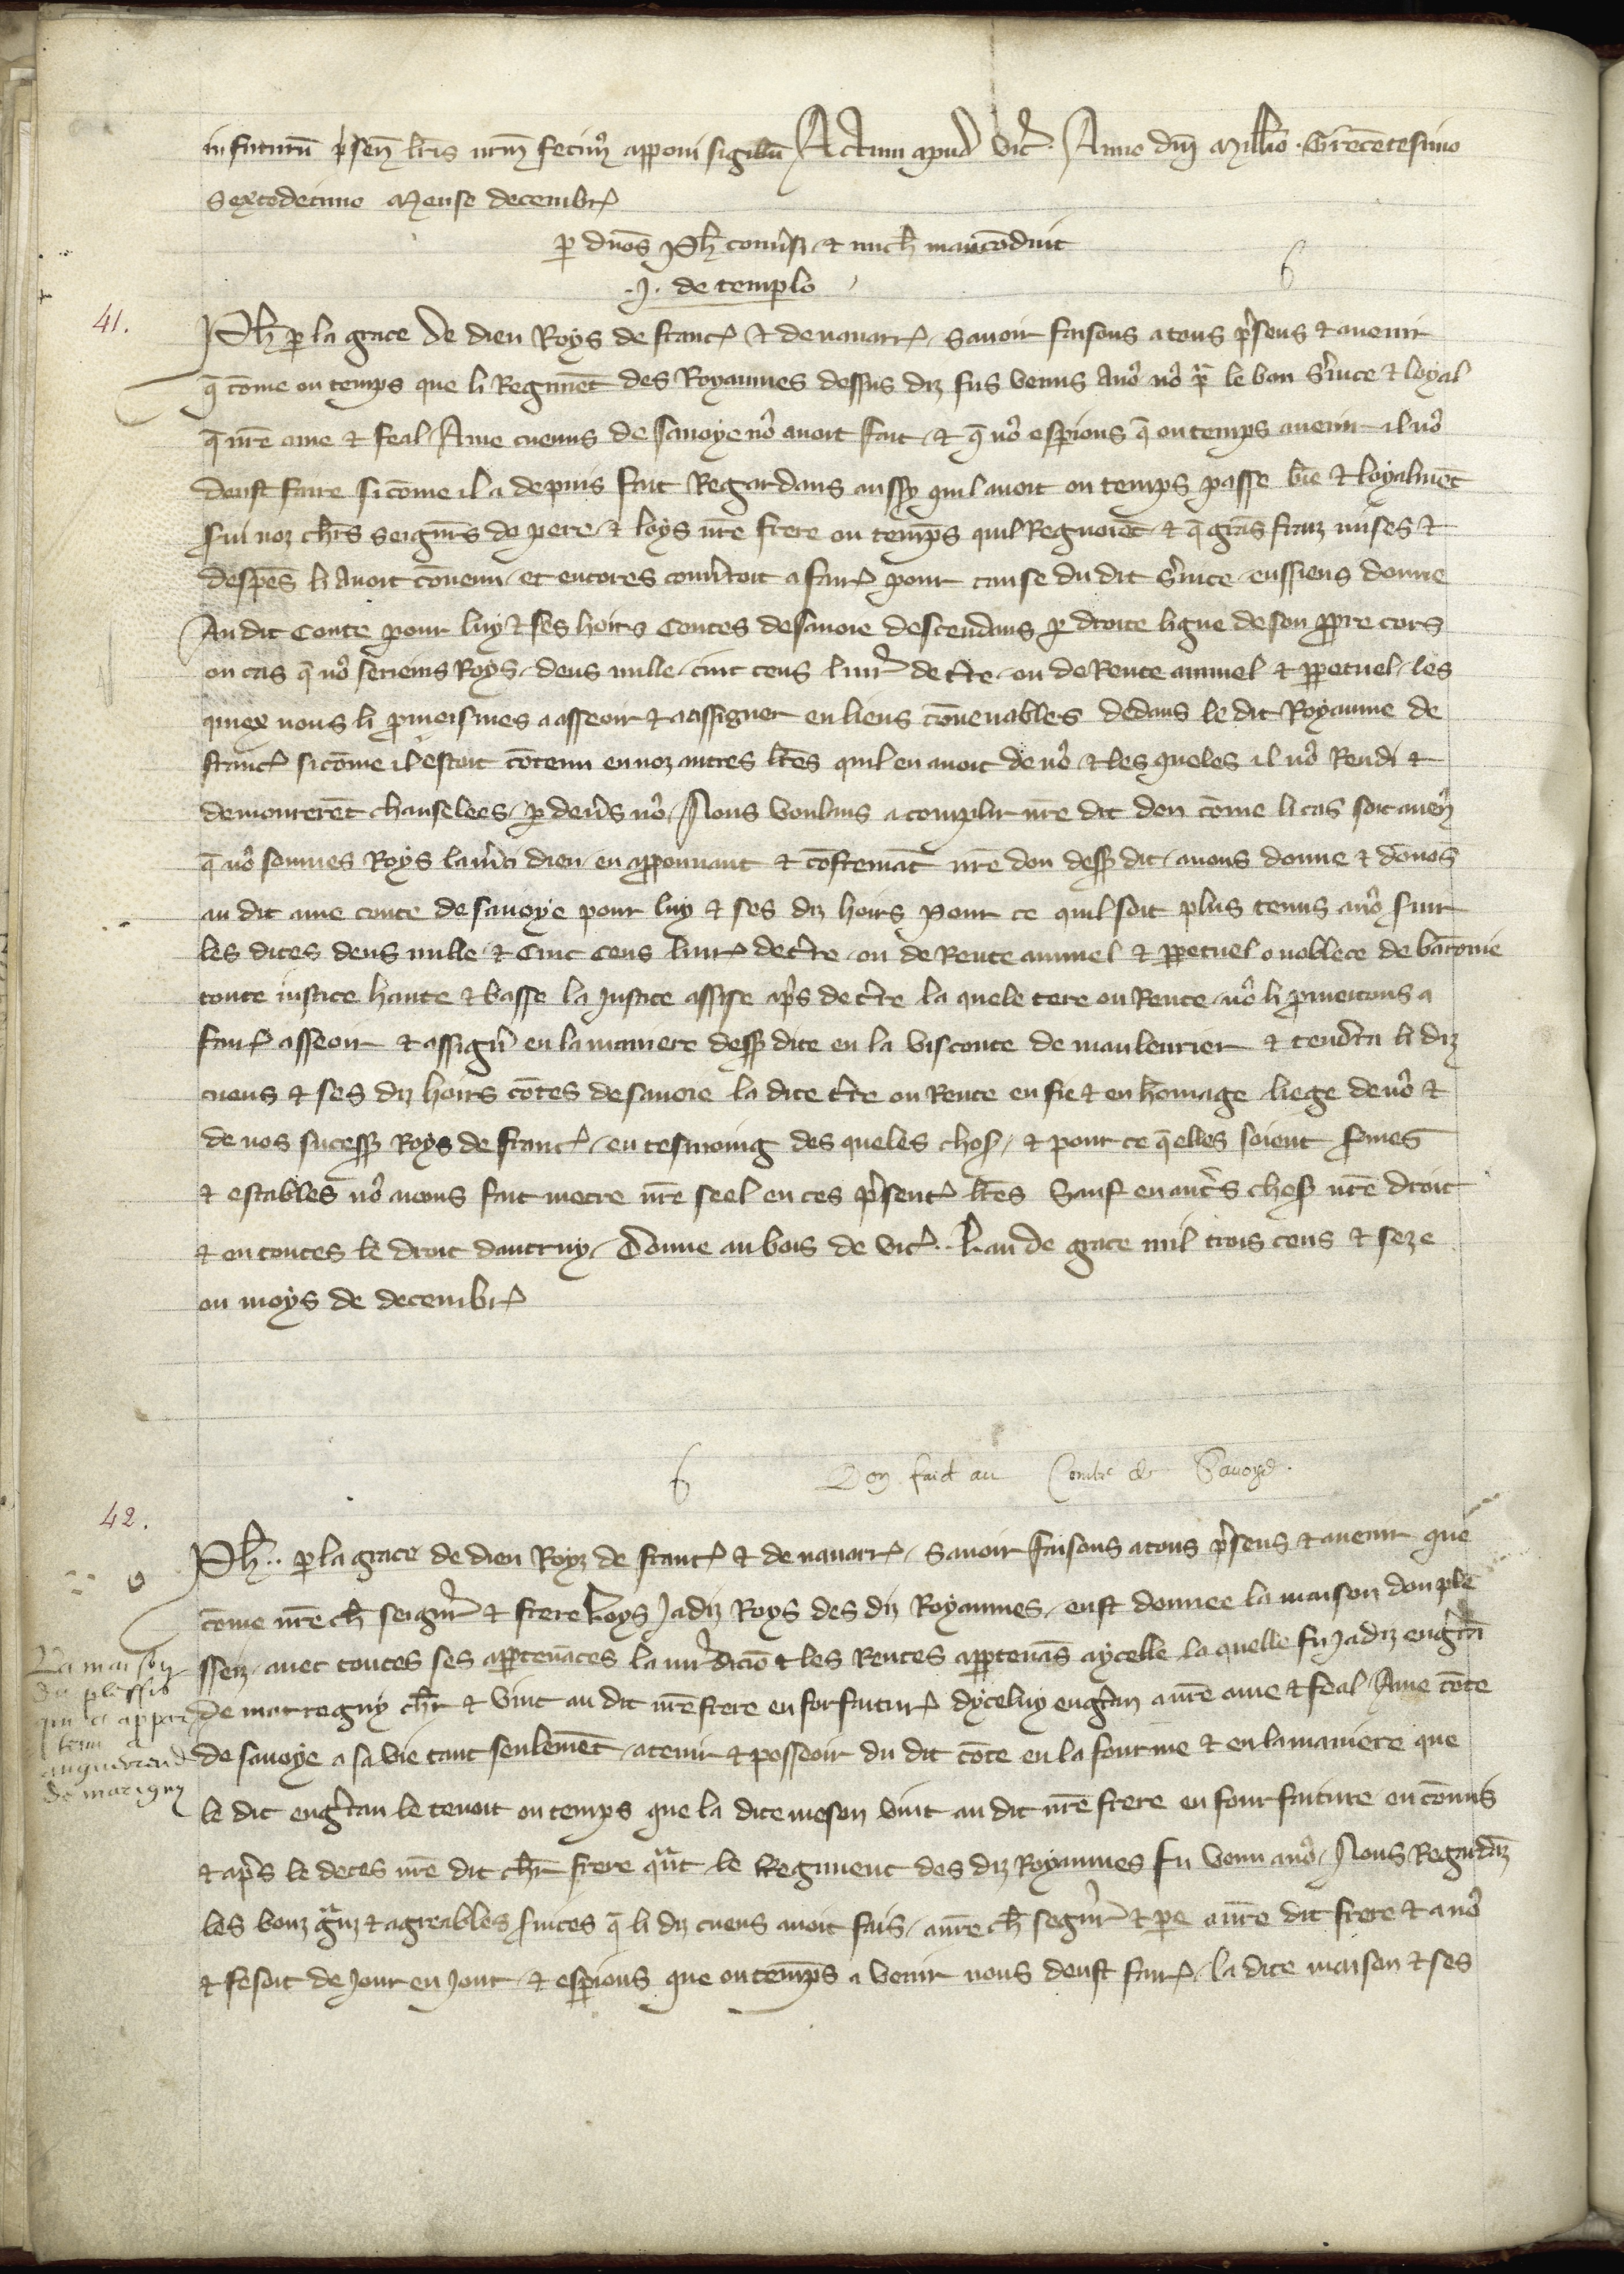 in futurũ p̃sen̄ lr̃is nrm̃ fecim9 apponi sigillũ Actum apud vic̃. Anno dñi Mill̃io. Trecẽtesimo
sextodecimo Mense decembr̃
p̱ dños Ph̃ conũsi & mich̃ mauconduit
.J. de templo
6
41.
Ph̃ p̱ la grace de dieu Roys de franc̃ & de nauarr̃, Sauoir faisons a tous p̃sens & auenir
q̃ cõme ou temps que li Regimẽt des Royaumes dessus diz fus venus Ano9 no9 p̃ le bon s̃uice & loyal
q̃ nr̃e ame & feal Ame cuenus de sauoye no9 auoit fait & q̃ no9 esp̱ions q̃ ou temps auenir il no9
deust faire si cõme il a depuis fait Regardans aussy quil auoit ou temps passe biẽ & loyalmẽt
s̃ui noz chr̃s seigneur̃s de pere & loys nr̃e frere ou temps quil Regnoiẽt & q̃ grãs fraiz mises &
despẽs li Auoit cõuenu et encores couũtoit a fair̃ pour cause du dit s̃uice eussiens donne
Au dit Conte pour luy & ses hoirs Contes de sauoie descendans p̱ droite ligne de son p̱pre cors
ou cas q̃ no9 seriens Roys, deus mille cinc cens liur̃ de t̃re ou de Rente annuel & p̱petuel, les
quiex nous li p̃meismes a asseoir & aassigner en lieus cõuenables dedans le dit Royaume de
franc̃ si cõme il estoit cõtenu en noz autres lr̃es quil en auoit de no9 & les queles il no9 Rendi &
demourerẽt chanselees p̱ deũs no9, Nous voulans acomplir nr̃e dit don cõme li cas soit auen̄
q̃ no9 sommes Roys la m̃ci dieu en approuuant & cõfremãt nr̃e don dess9 dit, auons donne & dõnos
au dit ame conte de sauoye pour luy & ses diz hoirs Pour ce quil soit plus tenus ano9 sur
les dites deus mille & Cinc Cens liur̃ de t̃re ou de Rente annuel & p̱petuel o noblece de barõnie
toute iustice haute & basse la Justice assise ap̃s de t̃re la quele tere ou Rente no9 li p̃metons a
fair̃ asseoir & assign̄ en la maniere dess9 dite en la visconte de mauleurier & tend̃a li diz
cuens & ses diz hoirs cõtes de sauoie la dite t̃re ou Rente en fie & en hõmage liege de no9 &
de nos sucess9 Roys de franc̃ en tesmoing des queles chos̃, & pour ce q̃elles soient fr̃mes
& estables no9 auons fait metre nr̃e seel en ces p̃sent̃ lr̃es Sauf en aut̃s chos̃ nr̃e droit
& en toutes le droit dautruy, Donne au bois de vic̃. Lan de grace mil trois cens & seze
ou moys de decembr̃
6 Don faict au Comte de Sauoye.
42.
Ph̃.. p̱ la grace de dieu Royz de franc̃ & de nauarr̃, Sauoir faisons a tous p̃sens & auenir que
cõme nr̃e ch̃ seigneur̃ & frere Loys Jadiz Roys des diz Royaumes, eust donnee la maison dou ple
sseiz, auec toutes ses app̱tenãces la iur̃dicio & les Rentes app̱tenãs aycelle la quelle fu Jadiz eng̃ran
de marregny chr̃ & vint au dit nr̃e frere en forfaitur̃ dyceluy eng̃ran a nr̃e ame & feal Ame cõte
de sauoye a sa vie tant seulemẽt a tenir & posseoir du dit cõte en la fourme & en la maniere que
le dit eng̃ran le tenoit ou temps que la dite meson vint au dit nr̃e frere en fourfaiture en cõmis
& ap̃s le deces nr̃e dit chr̃ frere qũt le Regiment des diz Royaumes fu venu ano9, Nous Regardãz
les bonz g̃nz & agreables s̃uices q̃ li diz cuens auoit fais, a nr̃e ch̃ segneur̃ & pe a nr̃e dit frere & a no9
& fesoit de Jour en Jour & esp̱ions que ou temps a venir nous deust fair̃, la dite maison & ses
La maison
du plessis
qui a appar
tenu a
anguerrand
de marigny